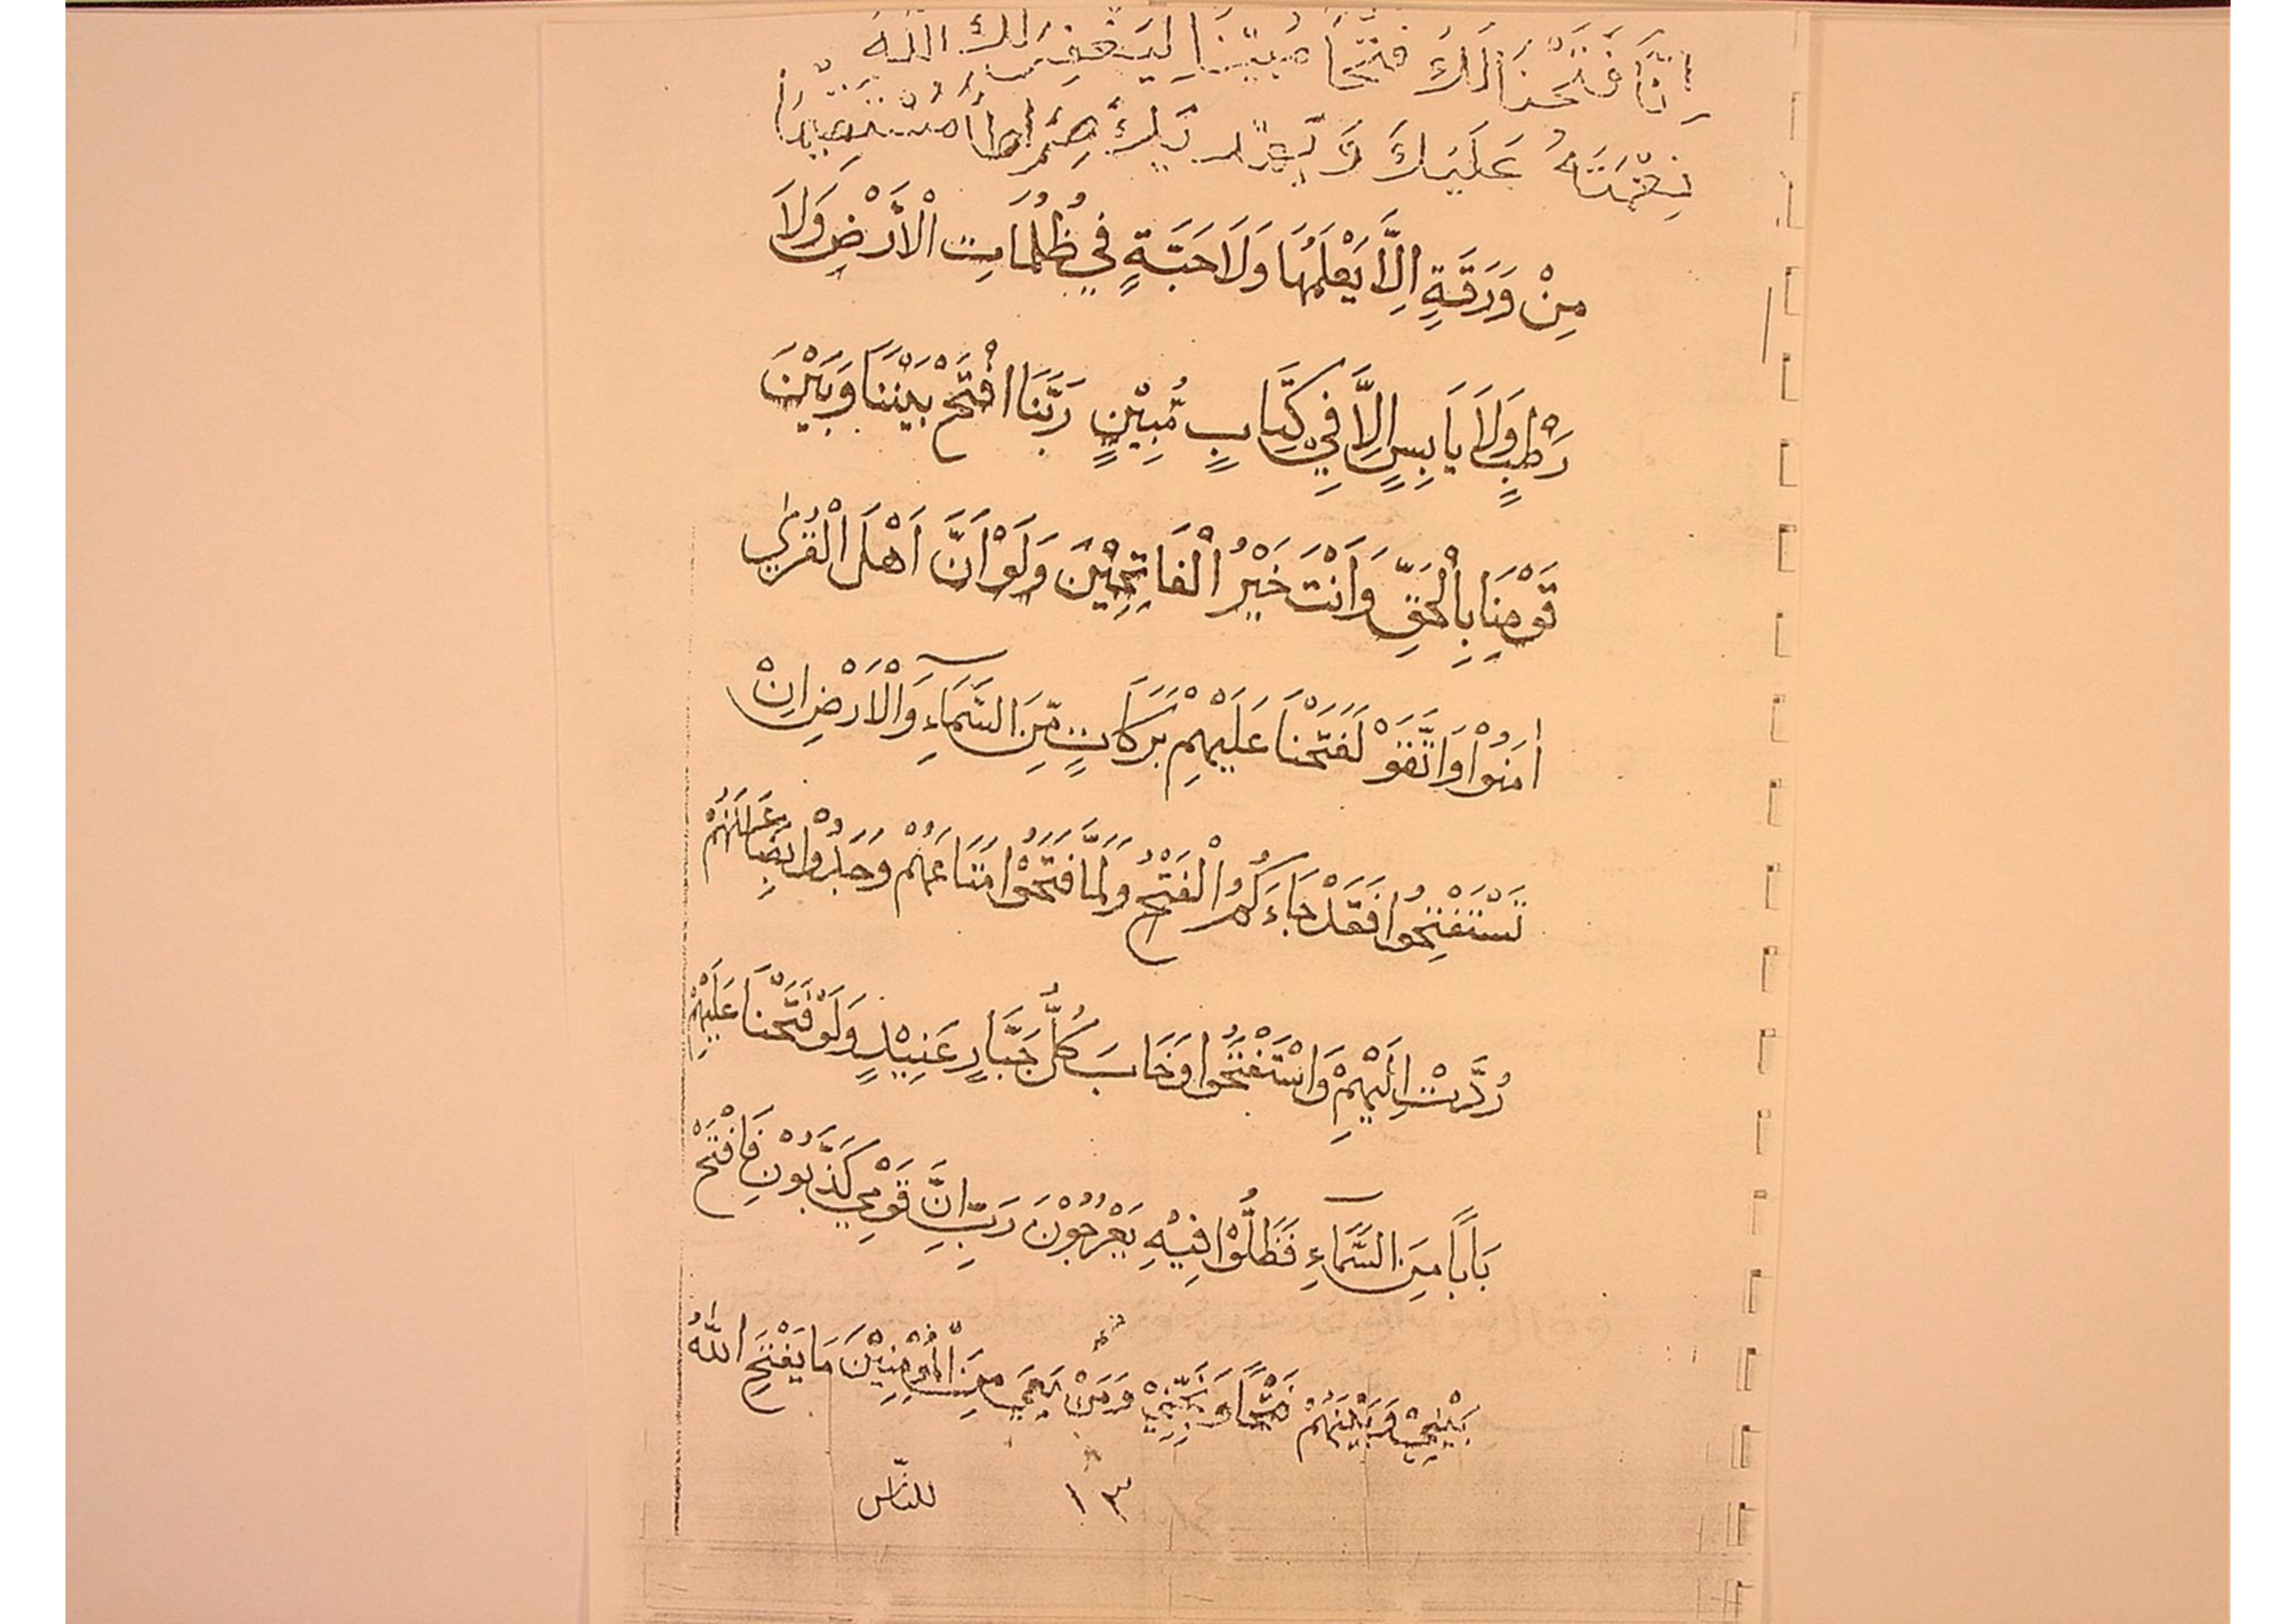 اِنَّا فَتَحْنَا لَكَ فَتْحًا مُبِيْنًا لِيَغْفِرَ لَكَ اللّٰهُ
نِعْمَتَهُ عَلَيْكَ وَيَهْدِيَكَ صِرَاطًا مُسْتَقِيْمًا
مِنْ وَرَقَةٍ اِلَّا يَعْلَمُهَا وَلَا حَبَّةٍ فِيْ ظُلُمَاتِ الْاَرْضِ وَلَا
رَطْبٍ وَلَا يَابِسٍ اِلَّا فِيْ كِتَابٍ مُّبِيْنٍ رَبَّنَا افْتَحْ بَيْنَنَا وَبَيْنَ
قَوْمِنَا بِالْحَقِّ وَاَنْتَ خَيْرُ الْفَاتِحِيْنَ وَلَوْ اَنَّ اَهْلَ الْقُرٰى
اٰمَنُوْا وَاتَّقَوْ لَفَتَحْنَا عَلَيْهِمْ بَرَكَاتٍ مِّنَ السَّمَآءِ وَالْاَرْضِ اِنْ
تَسْتَفْتِحُوْا فَقَدْ جَاءَكُمُ الْفَتْحُ وَلَمَّا فَتَحُوْا مَتَاعَهُمْ وَجَدُوْا بِضَاعَتَهُمْ
رُدَّتْ اِلَيْهِمْ وَاسْتَفْتَحُوْا وَخَابَ كُلُّ جَبَّارٍ عَنِيْدٍ وَلَوْ فَتَحْنَا عَلَيْهِمْ
بَابًا مِنَ السَّمَآءِ فَظَلُّوْا فِيْهِ يَعْرُجُوْنَ رَبِّ اِنَّ قَوْمِيْ كَذَّبُوْنِ فَافْتَحْ
بَيْنِيْ وَبَيْنَهُمْ فَتْحًا وَنَجِّنِيْ وَمَنْ مَعِيَ مِنَ الْمُؤْمِنِيْنَ مَا يَفْتَحِ اللّٰهُ
١٣ للنّاس